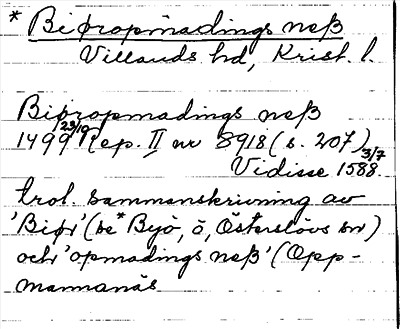 * Biøropmadings neß
Villands hd, Krist. l.
Biøropmadings neß
1499 23/10 Rep. II nr 8918 (s. 207)
Vidisse 1588 3/7.
trol. sammanskrivning av
'Biør' (se * Byö, ö, Österslövs sn)
och 'opmadings neß' (Opp-
mannanäs